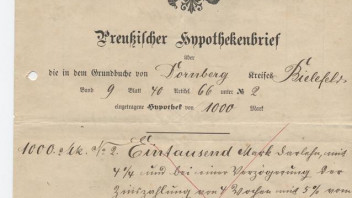 Preußischer Hypothekenbrief
über
die in dem Grundbuche von Dornberg Kreises Bielefeld
Band 9 Blatt 40 Artikel 66 unter № 2
eingetragene Hypothek von 1000 Mark
1000 Mk. a/2. Eintausend Mark Darlehn, mit
4 % und bei einer Verzögerung der
Zinszahlung von 4 Wochen mit 5 % vom